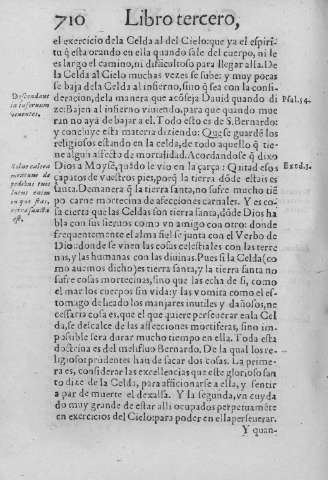 710 Libro tercero,
el exercicio dela Celda al del Cielo: que ya el espiri-
tu q̃ esta orando en ella quando sale del cuerpo, ni le
es largo el camino, ni dificultoso para llegar alla. De
la Celda al Cielo muchas vezes se sube: y muy pocas
se baja dela Celda al infierno, sino q̃ sea con la consi-
deracion, dela manera que acõseja Dauid quando di
ze: Bajen al infierno viuiendo, para que quando mue
ran no aya de bajar a el. Todo esto es de S. Bernardo:
y concluye esta materia diziendo: Que se guardẽ los
religiosos estando en la celda, de todo aquello q̃ tie-
ne algun affecto de mortalidad. Acordandose q̃ dixo
Dios a Moysẽ, quãdo le vio en la çarça: Quitad esos
çapatos de vuestros pies, porq̃ la tierra dõde estais es
santa. Demanera q̃ la tierra santa, no sufre mucho tiẽ
po carne mortecina de afecciones carnales. Y es co-
sa cierta que las Celdas son tierra santa, dõde Dios ha
bla con sus sieruos como vn amigo con otro: donde
frequentemente el alma fiel se junta con el Verbo de
Dios: donde se vnen las cosas celestiales con las terre
nas, y las humanas con las diuinas. Pues si la Celda (co
mo auemos dicho) es tierra santa, y la tierra santa no
sufre cosas mortecinas, sino que las echa de si, como
el mar los cuerpos sin vida: y las vomita como el es-
tomago delicado los manjares inutiles y dañosos, ne
cesaria cosa es, que el que quiere perseuerar en la Cel
da, se descalce de las affecciones mortiferas, sino im-
posible sera durar mucho tiempo en ella. Toda esta
doctrina es del melifluo Bernardo, De la qual los re-
ligiosos prudentes han de sacar dos cosas. La prime-
ra es, considerar las excellencias que este glorioso san
to dize de la Celda, para afficionarse a ella, y sentir
a par de muerte el dexalla. Y la segunda, vn cuyda
do muy grande de estar alli ocupados perpetuamẽte
en exercicios del Cielo: para poder en ella perseuerar.
Y quan-
Descendant
in infernum
viuentes.
Psal. 54.
Solue calcea
mentum de
pedibus tuis
locus enim
in quo stas,
terra sancta
est.
Exod. 3.